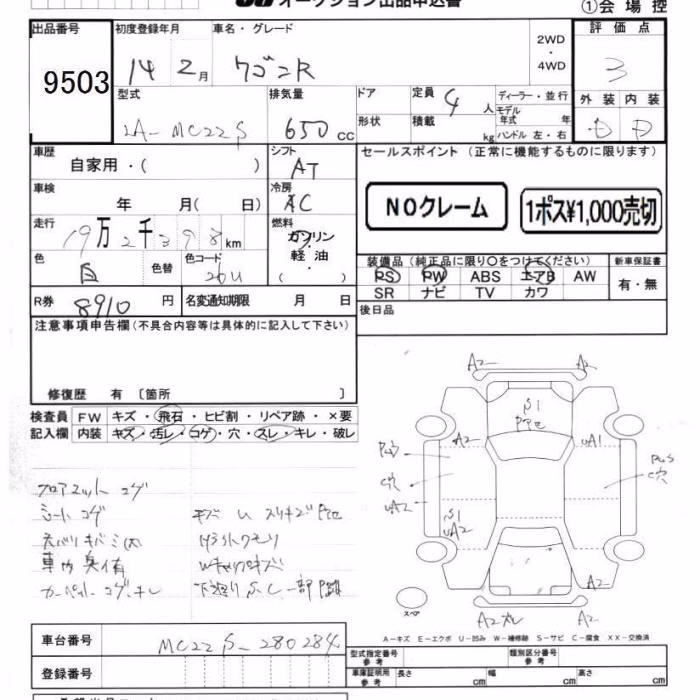 オークション出品申込書
①会場控
出品番号 初度登録年月 車名・グレード 2WD・4WD 評価点
9503 14 2月 ワゴンR 3
型式 排気量 ドア 定員 4人 ディーラー・並行 外装 内装
LA-MC22S 650cc 形状 積載 kg モデル年式 年 ハンドル 左・右 D
車歴 自家用・( ) シフト AT セールスポイント(正常に機能するものに限ります)
車検 年 月( 日) 冷房 AC NOクレーム 1ポス¥1,000売切
走行 19万2千398km 燃料 ガソリン 軽油 ( )
色 白 色替 色コード 26U
装備品(純正品に限り○をつけてください) 新車保証書
PS PW ABS エアB AW 有・無
SR ナビ TV カワ
R券 8910円 名変通知期限 月 日 後日品
注意事項申告欄(不具合内容等は具体的に記入して下さい)
修復歴 有〔箇所 〕
検査員 FW キズ・飛石・ヒビ割・リペア跡・×要
記入欄 内装 キズ・汚レ・コゲ・穴・スレ・キレ・破レ
フロアマット コゲ
シート コゲ
車内臭有
カーペット コゲ、キレ
下廻りS、C
A2 A2
S1
A2 UA1
C穴 C穴
UA2
S1
UA2
A2
スペア
A2
A-キズ E-エクボ U-凹み W-補修跡 S-サビ C-腐食 XX-交換済
車台番号 MC22S-280284
型式指定番号 参考 類別区分番号 参考
登録番号 車庫証明用 参考 長さ cm 幅 cm 高さ cm